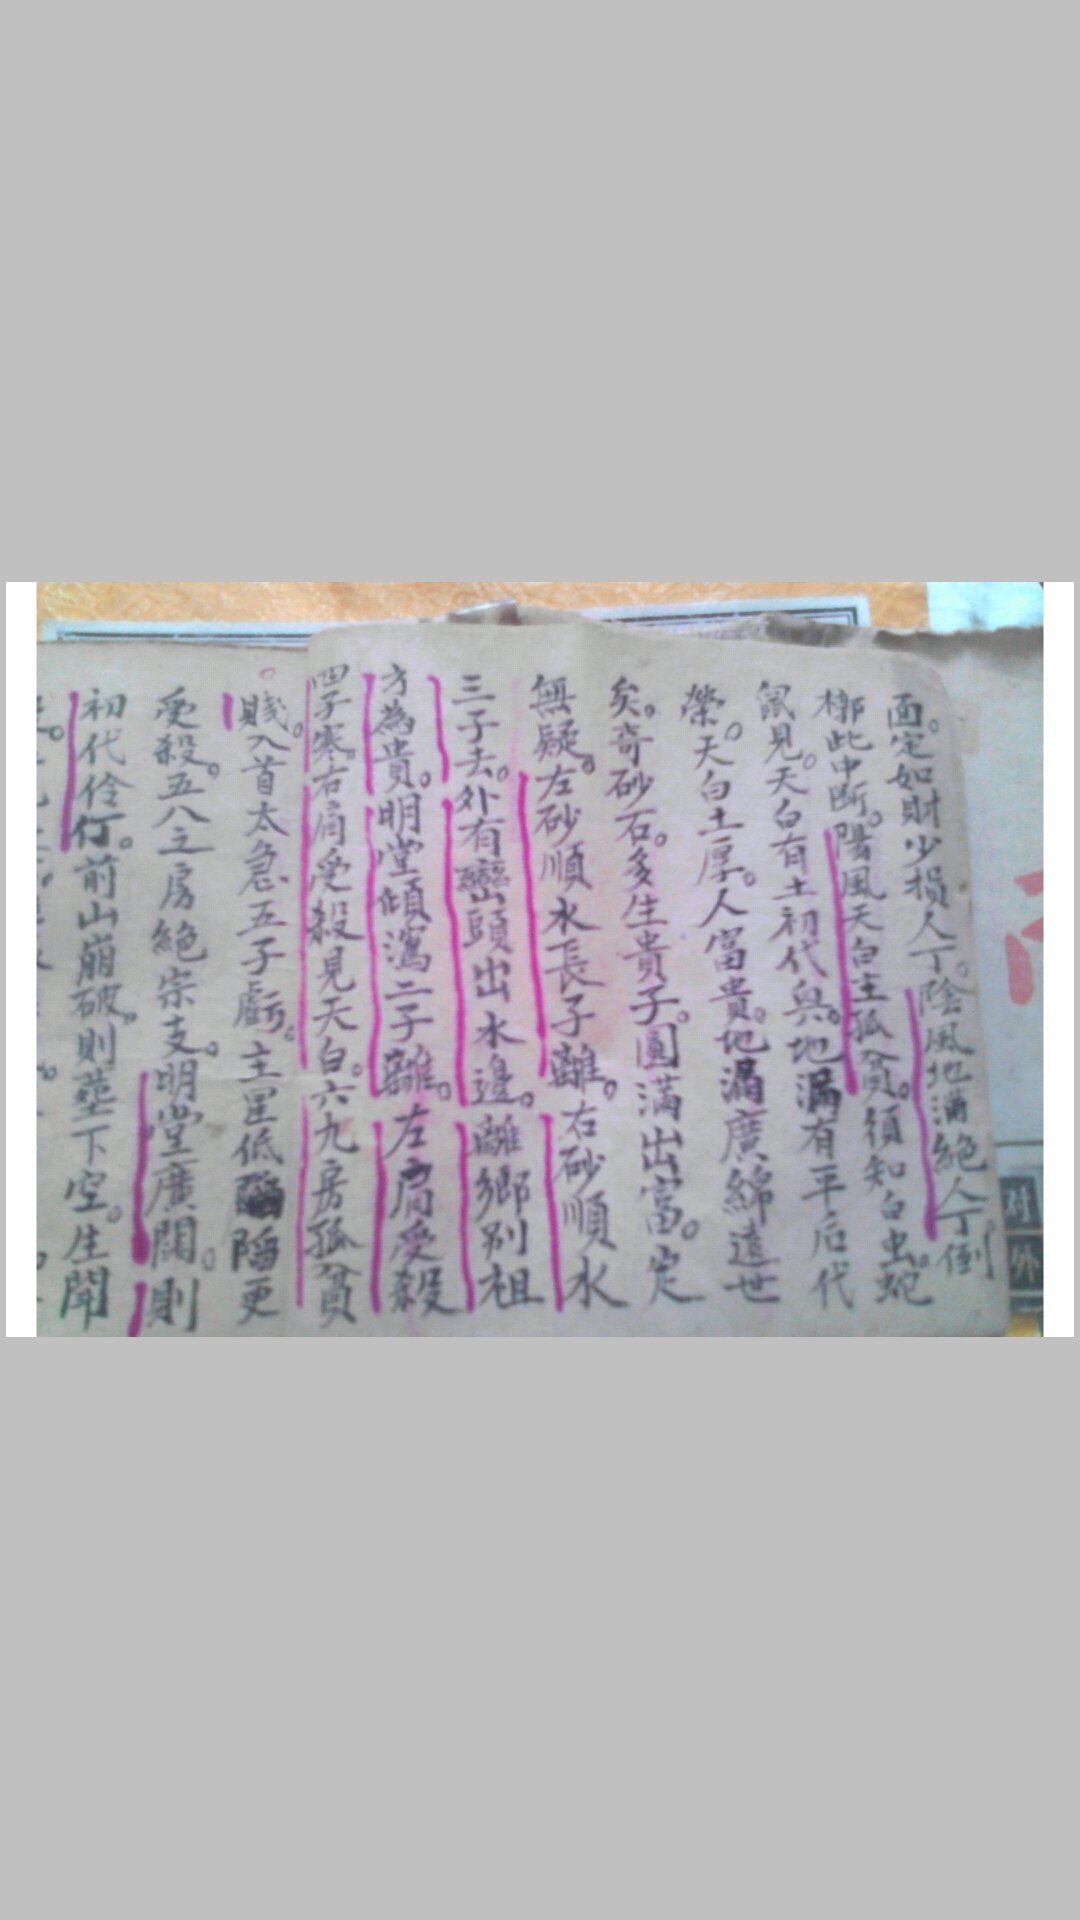 面。定如財少損人丁。陰風地漏絕人丁。倒
槨此中斷。陽風天白主孤貧。須知白虫。蛇
鼠見。天白有土初代興。地漏有平后代
榮。天白土厚。人富貴。地漏廣綿遠世
矣。奇砂石。多生貴子。圓滿出富。定
無疑。左砂順水長子離。右砂順水
三子去。外有巒頭出水邊。離鄉別祖
方為貴。明堂傾瀉二子離。左肩受殺
四子寒。右肩受殺見天白。六九房孤貧
賤。入首太急五子虧。主星低陷更
受殺。五八之房絕宗支。明堂廣闊。則
初代伶仃。前山崩破。則塋下空。生聞
对
外